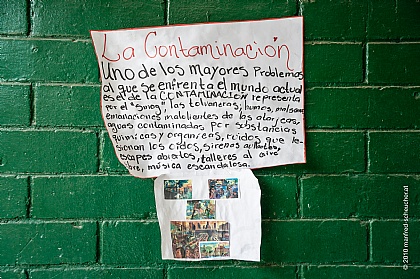 La Contaminación
Uno de los mayores problemas
al que se enfrenta el mundo actual
es el de la CONTAMINACION representa
por el "smog", las tolvaneras, humos,
emanaciones malolientes de las atarjeas,
aguas contaminadas por substancias
químicas y organicas, ruidos, que le-
sionan los oídos, sirenas
escapes abiertos, talleres al aire
libre, música escandalosa.
© 2010 manfred schweda